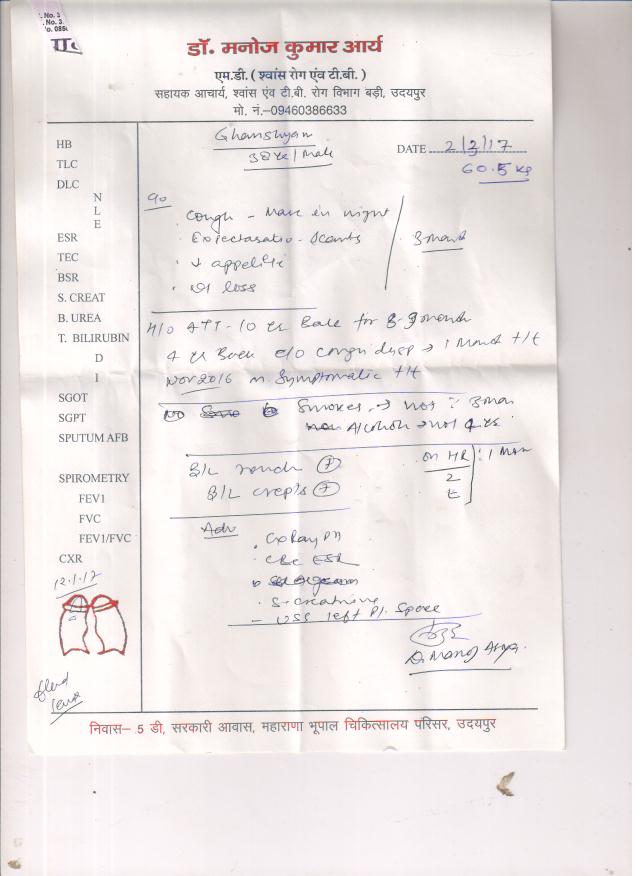 . No. 3
. No. 3
डॉ. मनोज कुमार आर्य
एम.डी. ( श्वांस रोग एंव टी.बी. )
सहायक आचार्य, श्वांस एंव टी.बी. रोग विभाग बड़ी, उदयपुर
मो. नं.–09460386633
Ghanshyam
Male
DATE 2/2/17
60.5 kg
HB
TLC
DLC
N
L
E
ESR
TEC
BSR
S. CREAT
B. UREA
T. BILIRUBIN
D
I
SGOT
SGPT
SPUTUM AFB
SPIROMETRY
FEV1
FVC
FEV1/FVC
CXR
12.1.17
Cough - More in night
Expectoration - Scanty
↓ appetite
wt loss
3 month
H/O ATT - 10 yr Back for 8-9 month
4 yr Back c/o cough → 1 Month t/t
Nov 2016 Symptomatic t/t
Smoker → not 3 mon
Alcohol → not 4 yrs
B/L ronchi +
B/L crepts +
Adv
. CxRay PA
. CBC ESR
. S. creatinine
- USG left Pl. Space
Dr. Manoj Arya
निवास– 5 डी, सरकारी आवास, महाराणा भूपाल चिकित्सालय परिसर, उदयपुर